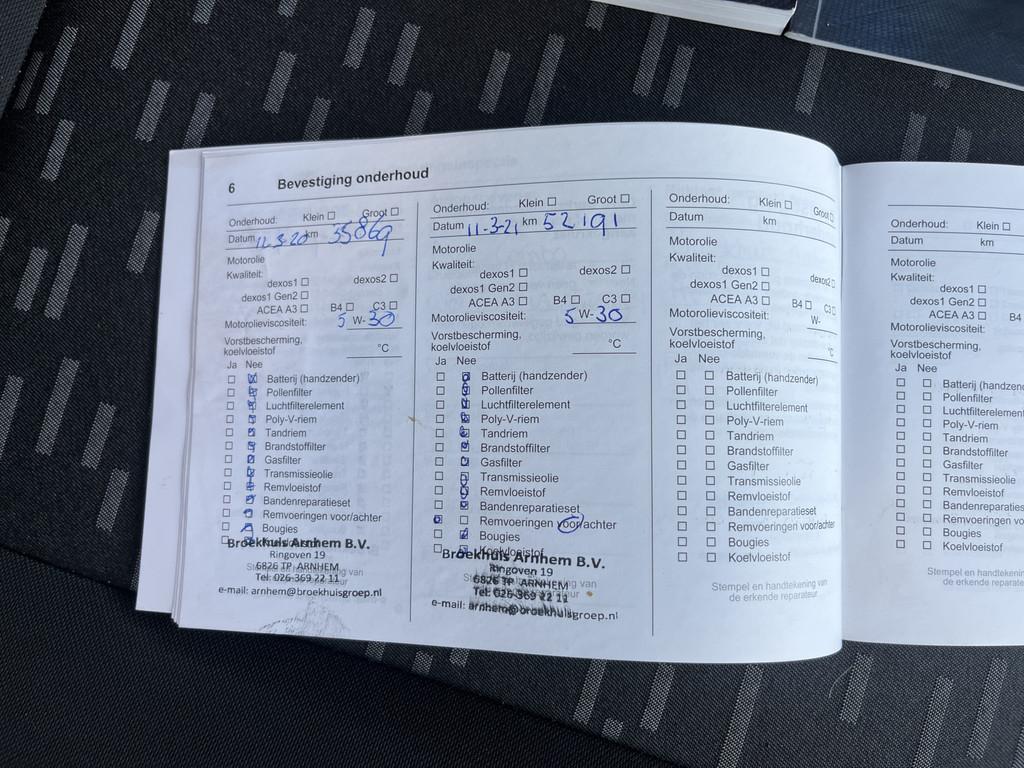 6 Bevestiging onderhoud
Onderhoud: Klein ☐ Groot ☐
Datum 11-3-20 km 35869
Motorolie
Kwaliteit:
dexos1 ☐ dexos2 ☐
dexos1 Gen2 ☐
ACEA A3 ☐ B4 ☐ C3 ☐
Motorolieviscositeit: 5 W-30
Vorstbescherming,
koelvloeistof °C
Ja Nee
Batterij (handzender)
Pollenfilter
Luchtfilterelement
Poly-V-riem
Tandriem
Brandstoffilter
Gasfilter
Transmissieolie
Remvloeistof
Bandenreparatieset
Remvoeringen voor/achter
Bougies
Broekhuis Arnhem B.V.
Ringoven 19
6826 TP ARNHEM
Tel: 026-369 22 11
e-mail: arnhem@broekhuisgroep.nl
Onderhoud: Klein ☐ Groot ☐
Datum 11-3-21 km 52191
Motorolie
Kwaliteit:
dexos1 ☐ dexos2 ☐
dexos1 Gen2 ☐
ACEA A3 ☐ B4 ☐ C3 ☐
Motorolieviscositeit: 5 W-30
Vorstbescherming,
koelvloeistof °C
Ja Nee
Batterij (handzender)
Pollenfilter
Luchtfilterelement
Poly-V-riem
Tandriem
Brandstoffilter
Gasfilter
Transmissieolie
Remvloeistof
Bandenreparatieset
Remvoeringen voor/achter
Bougies
Koelvloeistof
Broekhuis Arnhem B.V.
Ringoven 19
6826 TP ARNHEM
Tel: 026-369 22 11
e-mail: arnhem@broekhuisgroep.nl
Onderhoud: Klein ☐ Groot ☐
Datum km
Motorolie
Kwaliteit:
dexos1 ☐ dexos2 ☐
dexos1 Gen2 ☐
ACEA A3 ☐ B4 ☐ C3 ☐
Motorolieviscositeit: W-
Vorstbescherming,
koelvloeistof °C
Ja Nee
Batterij (handzender)
Pollenfilter
Luchtfilterelement
Poly-V-riem
Tandriem
Brandstoffilter
Gasfilter
Transmissieolie
Remvloeistof
Bandenreparatieset
Remvoeringen voor/achter
Bougies
Koelvloeistof
Stempel en handtekening van
de erkende reparateur
Onderhoud: Klein ☐
Datum km
Motorolie
Kwaliteit:
dexos1 ☐
dexos1 Gen2 ☐
ACEA A3 ☐ B4
Motorolieviscositeit:
Vorstbescherming,
koelvloeistof
Ja Nee
Batterij (handzen
Pollenfilter
Luchtfilterelement
Poly-V-riem
Tandriem
Brandstoffilter
Gasfilter
Transmissieolie
Remvloeistof
Bandenreparatieset
Remvoeringen vo
Bougies
Koelvloeistof
Stempel en handtekenin
de erkende reparate